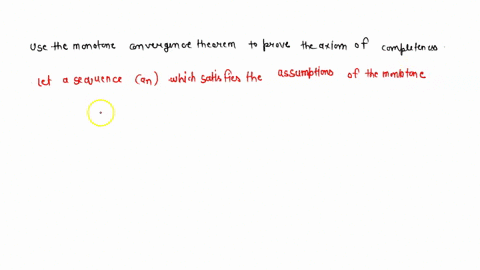 Use the monotone convergence theorem to prove the axiom of completeness.
Let a sequence (an) which satisfies the assumptions of the monotone